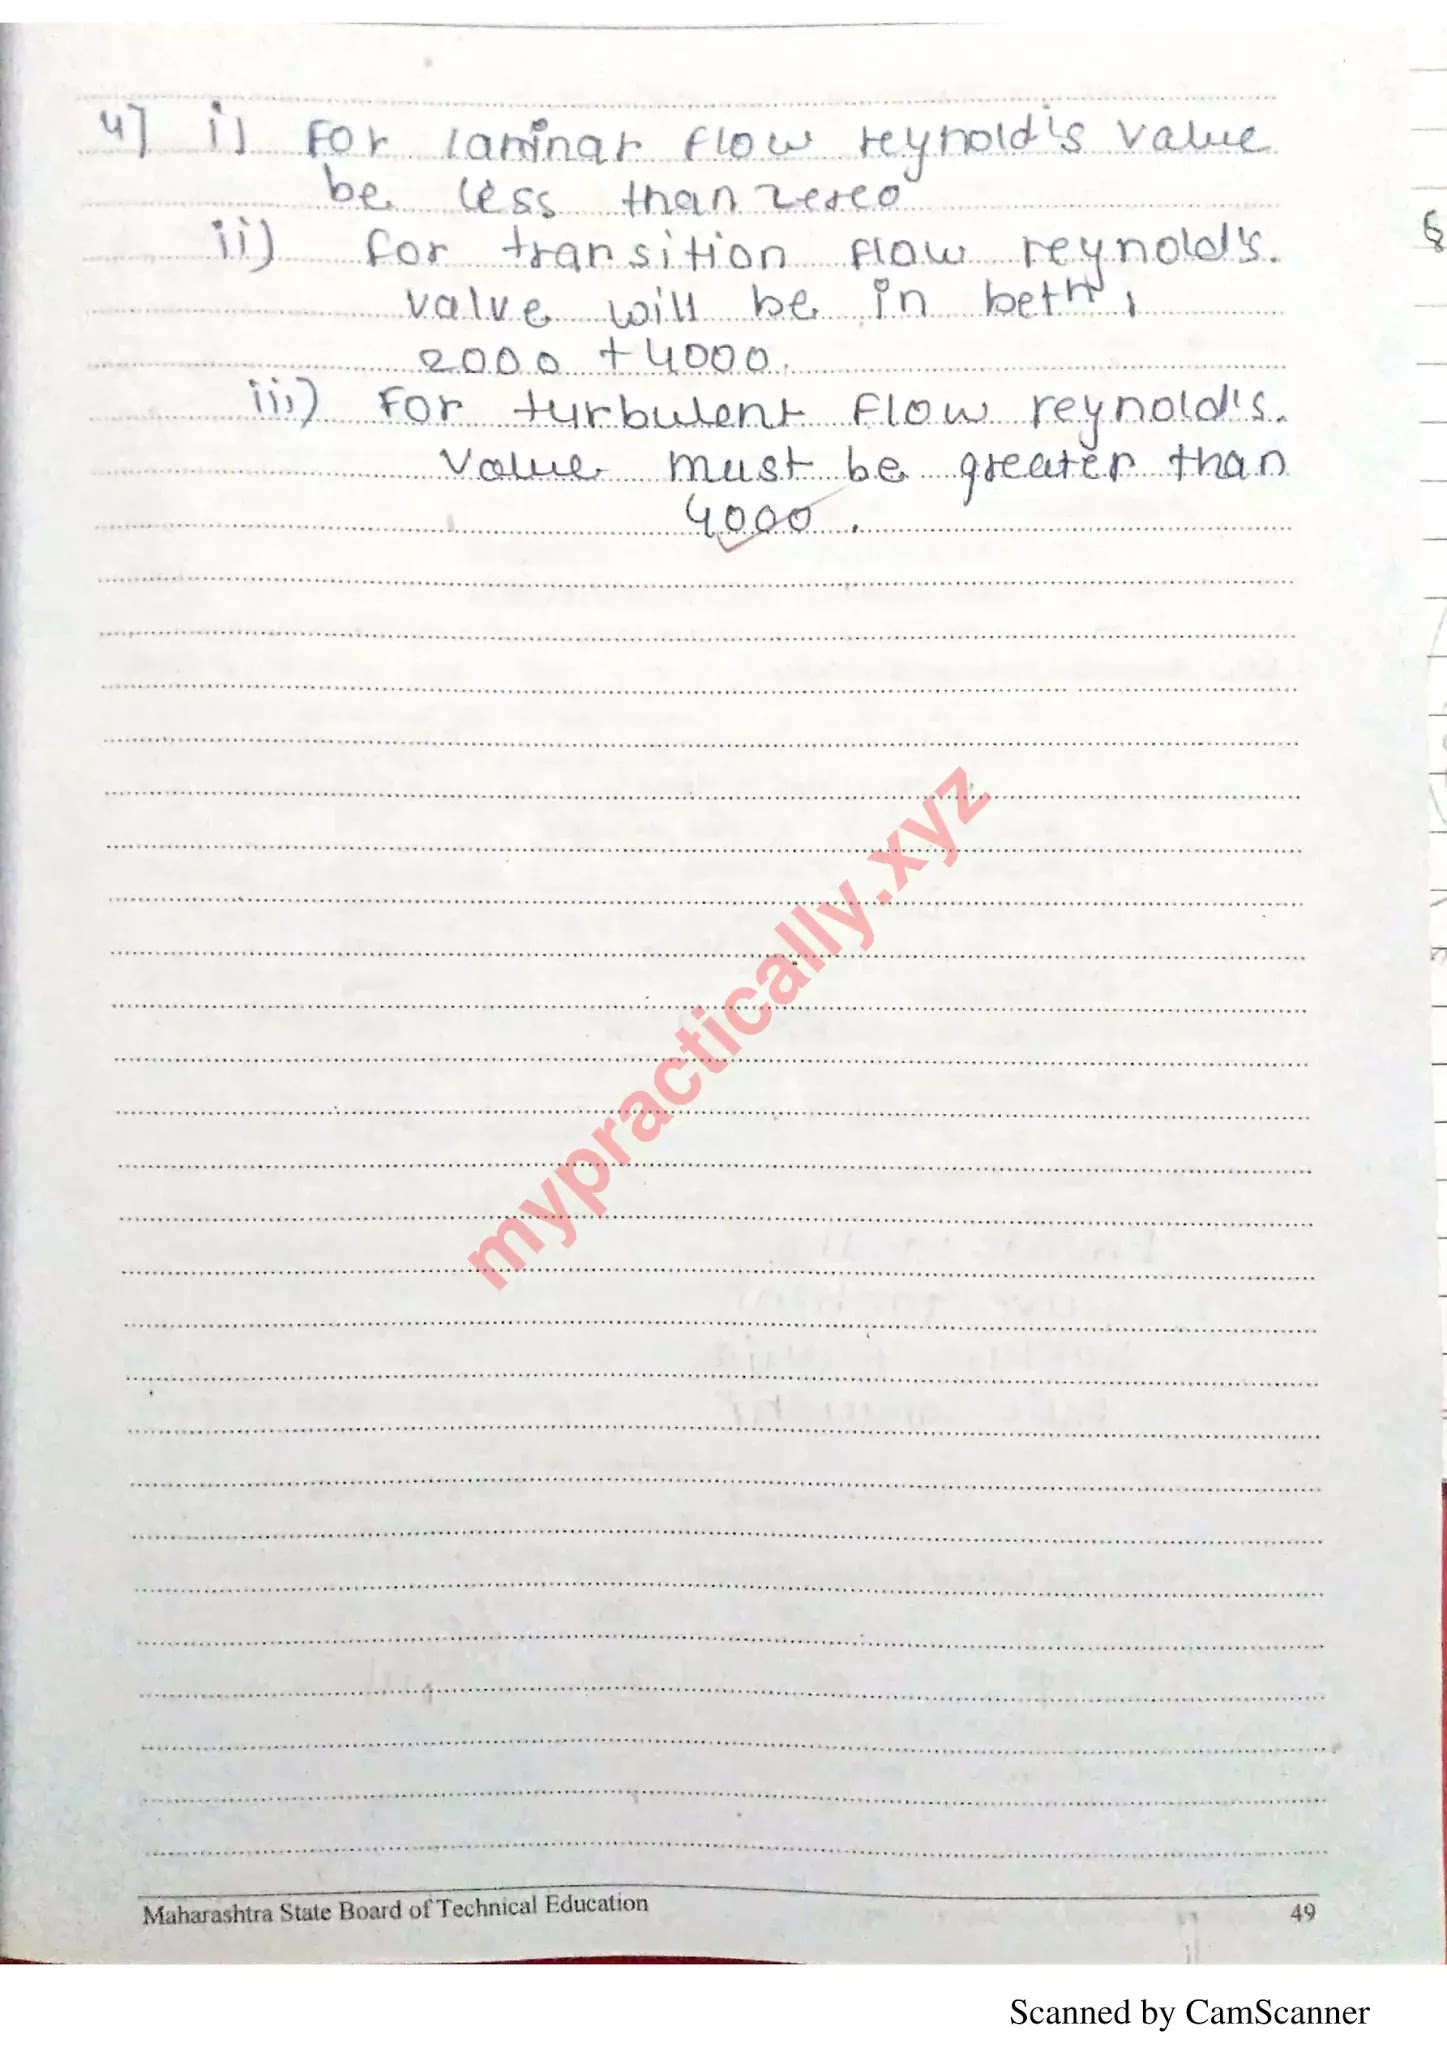 4] i] For laminar flow reynold's value
be less than zereo
ii) for transition flow reynold's.
valve will be in beth,
2000 + 4000.
iii) For turbulent flow reynold's.
Value must be greater than
4000.
mypractically.xyz
Maharashtra State Board of Technical Education 49
Scanned by CamScanner